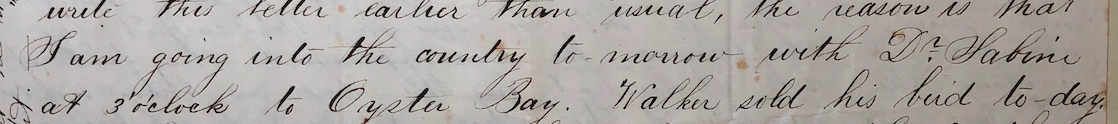 write this letter earlier than usual, the reason is that
I am going into the country to-morrow with Dr. Sabine
at 3 o'clock to Oyster Bay. Walker sold his bird to-day.